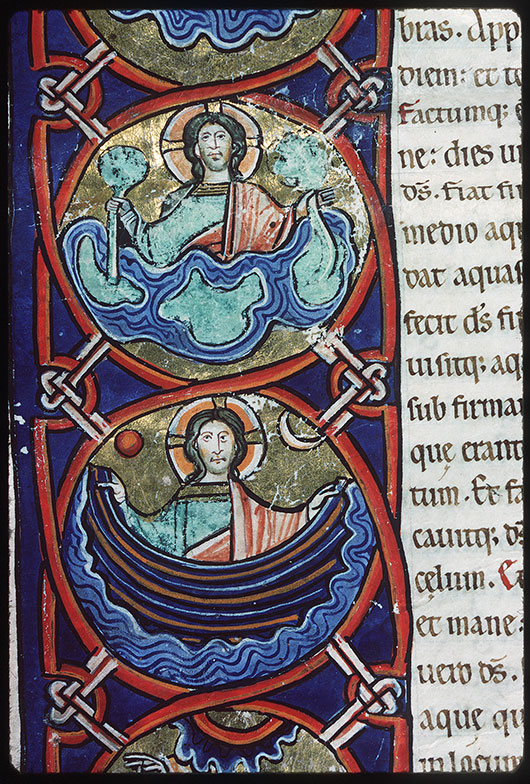 bras. App
diem: et te
Factumq;
ne: dies u
ds. fiat fir
medio aqu
dat aquas
fecit ds fir
uisitq; aq
sub firma
que erant
tum. Et fa
cauitq; ds
celum.
et mane:
uero ds.
aque qu
in locum